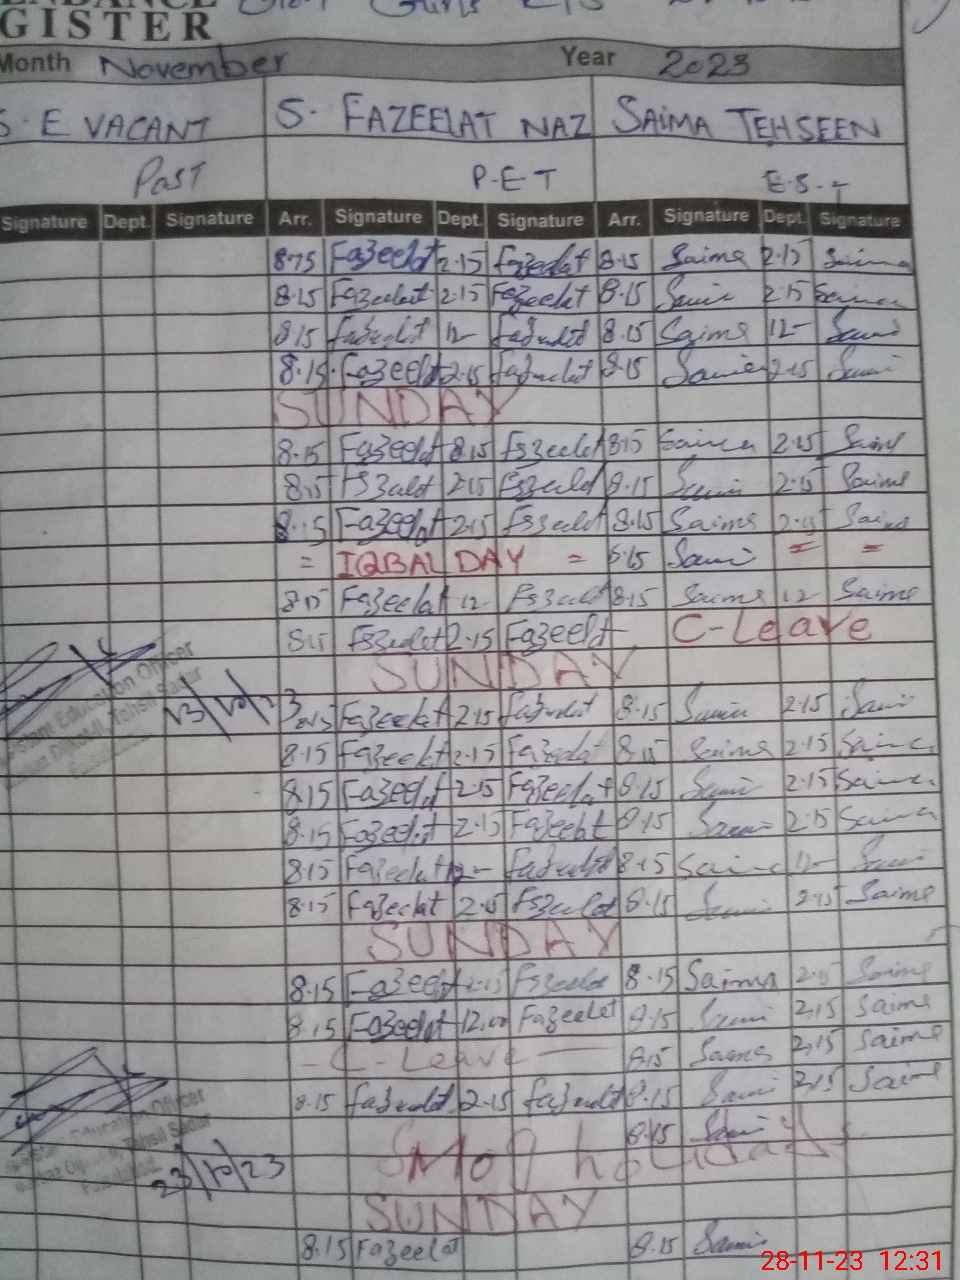 GISTER
Month November Year 2023
S. E VACANT S. FAZEELAT NAZ SAIMA TEHSEEN
Post P.E.T E.S.T
Signature Dept. Signature Arr. Signature Dept. Signature Arr. Signature Dept. Signature
8.15 Fazeelat 2.15 Fazeelat 8.15 Saima 2.15 Saima
8.15 Fazeelat 2.15 Fazeelat 8.15 Saima 2.15 Saima
8.15 Fazeelat 12- Fazeelat 8.15 Saima 12- Saima
8.15 Fazeelat 2.15 Fazeelat 8.15 Saima 2.15 Saima
SUNDAY
8.15 Fazeelat 8.15 Fazeelat 8.15 Saima 2.15 Saima
8.15 Fazeelat 2.15 Fazeelat 8.15 Saima 2.15 Saima
8.15 Fazeelat 2.15 Fazeelat 8.15 Saima 2.15 Saima
= IQBAL DAY = 8.15 Saima = =
8.15 Fazeelat 12- Fazeelat 8.15 Saima 12- Saima
8.15 Fazeelat 2.15 Fazeelat C-Leave
SUNDAY
8.15 Fazeelat 2.15 Fazeelat 8.15 Saima 2.15 Saima
8.15 Fazeelat 2.15 Fazeelat 8.15 Saima 2.15 Saima
8.15 Fazeelat 2.15 Fazeelat 8.15 Saima 2.15 Saima
8.15 Fazeelat 2.15 Fazeelat 8.15 Saima 2.15 Saima
8.15 Fazeelat 12- Fazeelat 8.15 Saima 12- Saima
8.15 Fazeelat 2.15 Fazeelat 8.15 Saima 2.15 Saima
SUNDAY
8.15 Fazeelat 2.15 Fazeelat 8.15 Saima 2.15 Saima
8.15 Fazeelat 12.00 Fazeelat 8.15 Saima 2.15 Saima
- C-Leave - 8.15 Saima 2.15 Saima
8.15 Fazeelat 2.15 Fazeelat 8.15 Saima 2.15 Saima
8.15 Saima
Smog holiday
Education Officer
Tehsil Sadar
23/10/23
SUNDAY
8.15 Fazeelat 8.15 Saima
28-11-23 12:31